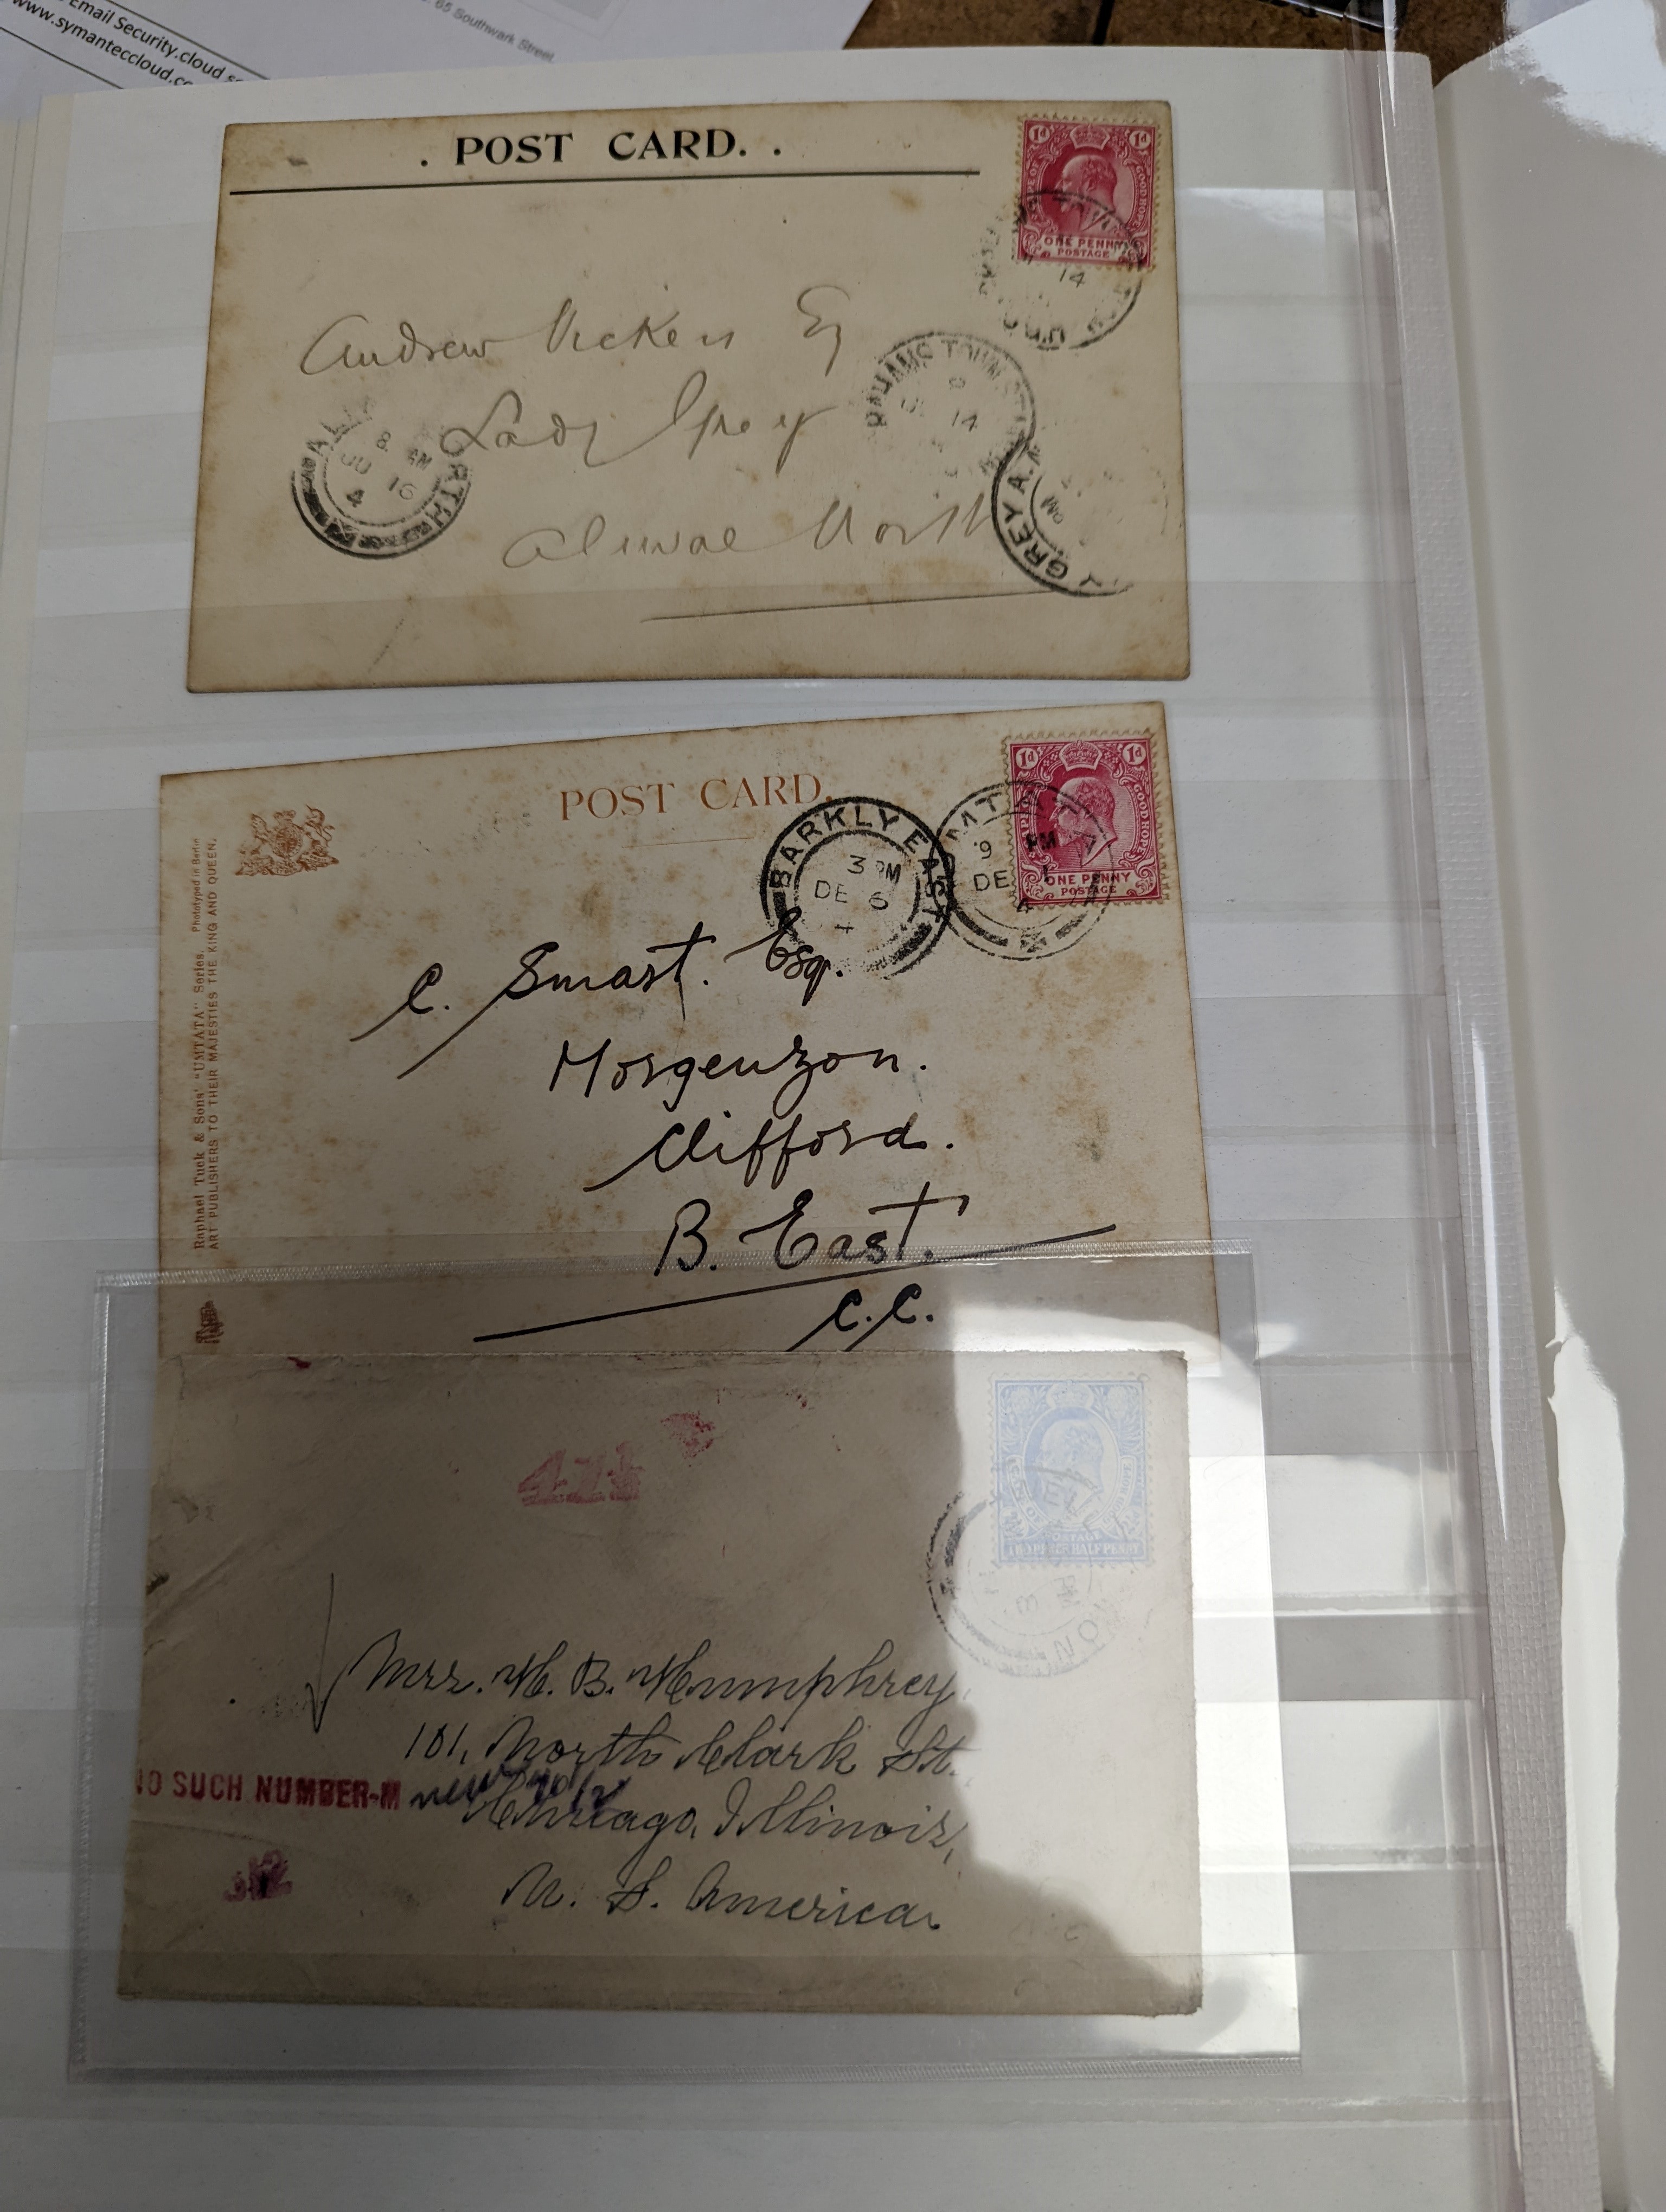 Email Security.cloud
www.symanteccloud.co
65 Southwark Street
. POST CARD. .
1d 1d
GOOD HOPE
ONE PENNY
POSTAGE
14
Andrew Vickers Esq
Lady Grey
Aliwal North
GRAHAMS TOWN
14
8 AM
JU 16
4
GREY
PM
POST CARD.
1d 1d
GOOD HOPE
ONE PENNY
POSTAGE
BARKLY EAST
3 PM
DE 6
4
9 PM
DE
4
Raphael Tuck & Sons' "UMTATA" Series. Phototyped in Berlin
ART PUBLISHERS TO THEIR MAJESTIES THE KING AND QUEEN.
C. Smart. Esq.
Morgenzon.
Clifford.
B. East.
C.C.
POSTAGE
HALFPENNY
Mrs. H. B. Humphrey,
101, North Clark St.
NO SUCH NUMBER-M new
Chicago, Illinois,
U. S. America